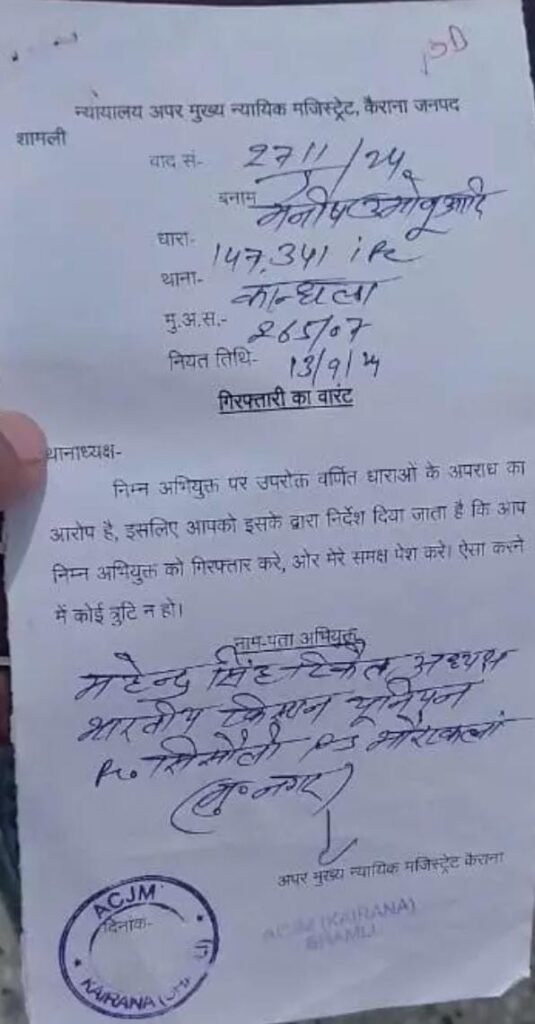 न्यायालय अपर मुख्य न्यायिक मजिस्ट्रेट, कैराना जनपद
शामली
वाद सं- 2711/24
बनाम मनीष उर्फ मोनू आदि
धारा- 147, 341 IPC
थाना- कान्धला
मु.अ.स.- 265/07
नियत तिथि- 13/9/24
गिरफ्तारी का वारंट
थानाध्यक्ष-
निम्न अभियुक्त पर उपरोक्त वर्णित धाराओं के अपराध का
आरोप है, इसलिए आपको इसके द्वारा निर्देश दिया जाता है कि आप
निम्न अभियुक्त को गिरफ्तार करे, ओर मेरे समक्ष पेश करे। ऐसा करने
में कोई त्रुटि न हो।
नाम-पता अभियुक्त
महेन्द्र सिंह टिकैत अध्यक्ष
भारतीय किसान यूनियन
सिसौली PS भौराकलां
(मु० नगर)
अपर मुख्य न्यायिक मजिस्ट्रेट कैराना
ACJM (KAIRANA)
SHAMLI
ACJM
दिनांक-
KAIRANA